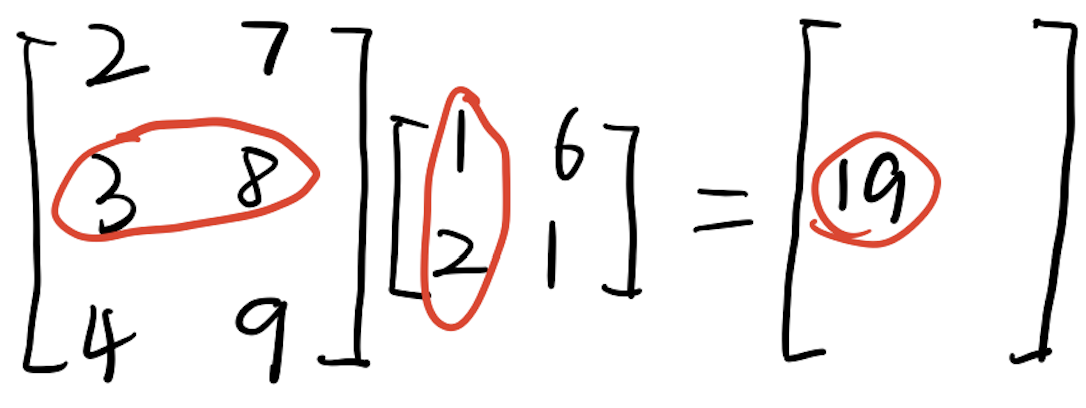 2 7
3 8
4 9
1 6
2 1
=
19